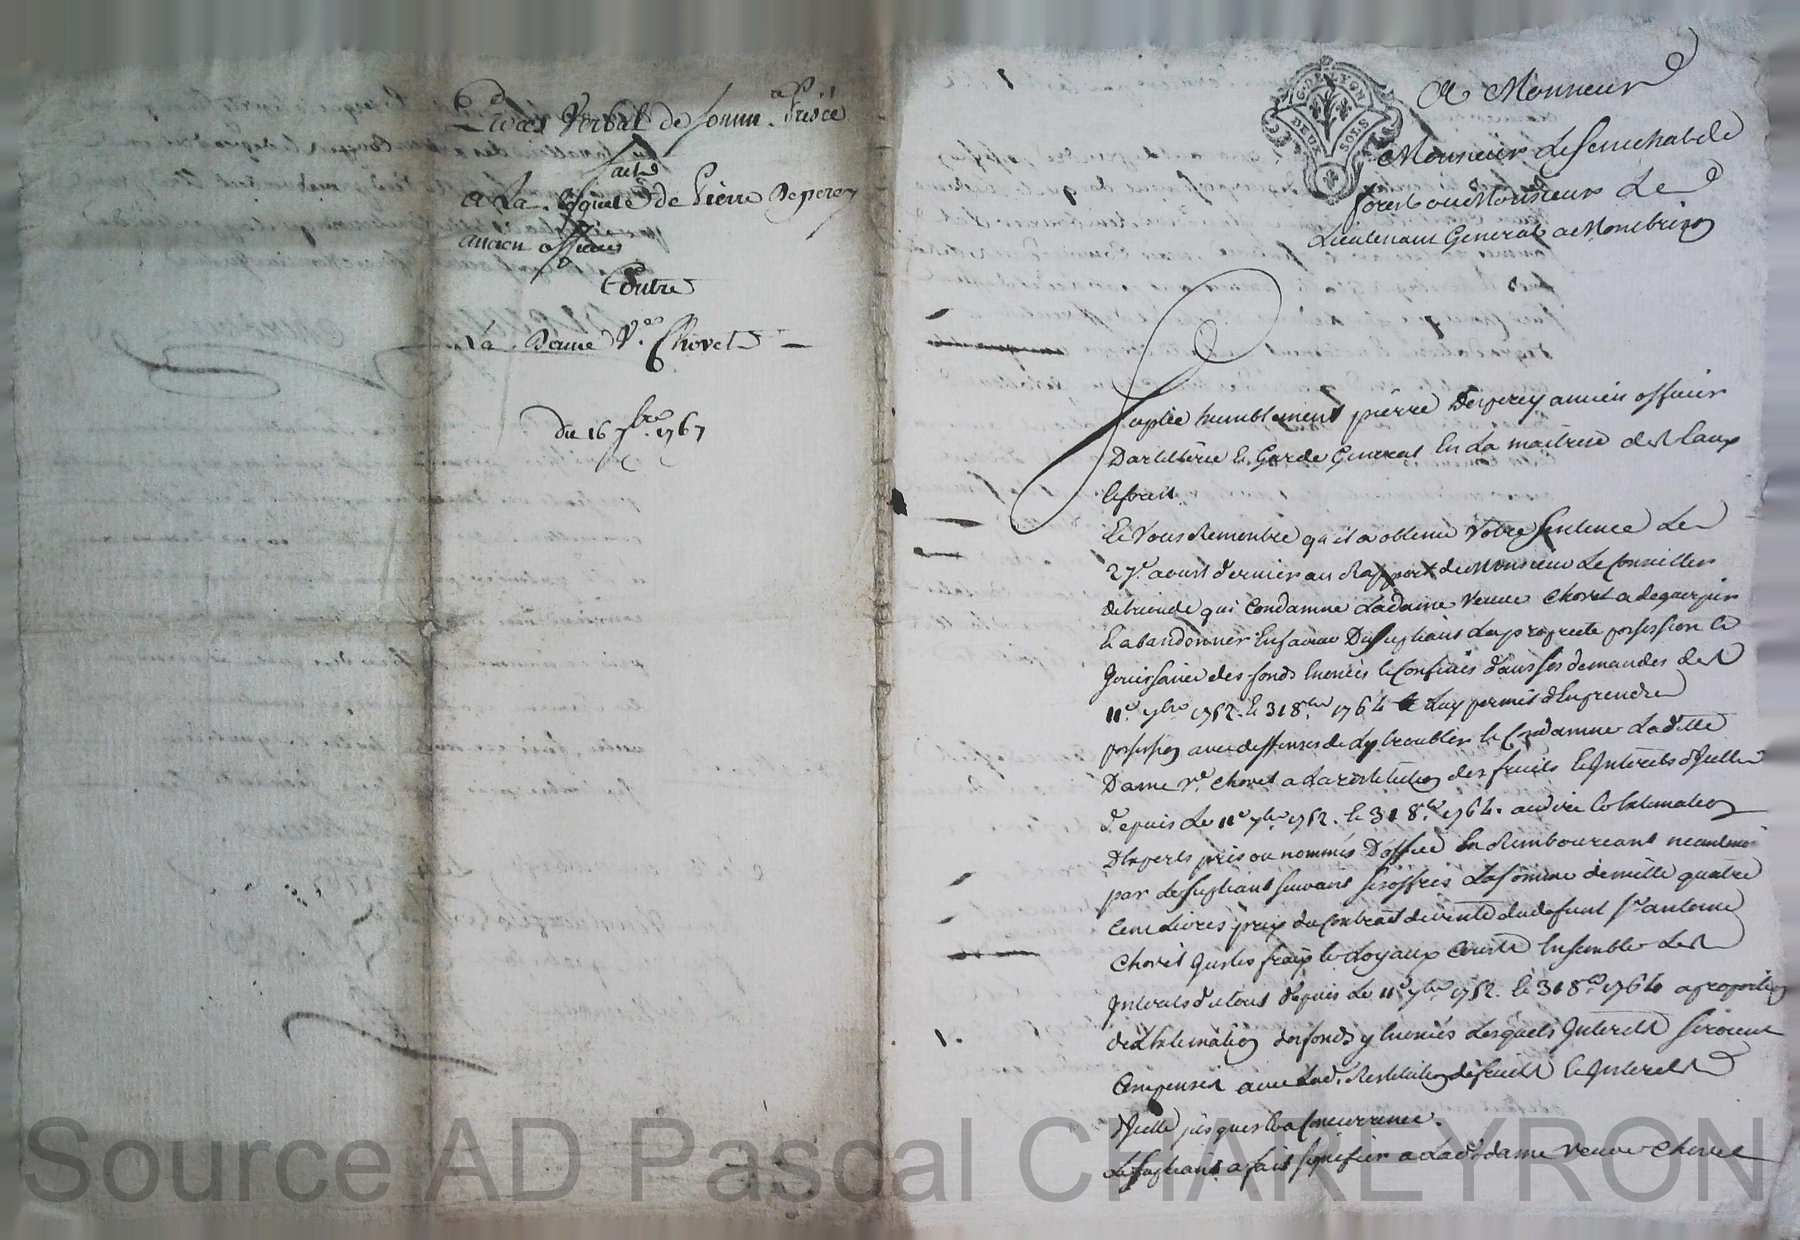 Proces Verbal de Comm. apris
acte
a La Requete de Pierre Desperey
ancien officier
Contre
La Dame Ve. Chovet
du 16 7bre. 1767
G. DE LYON
DEUX SOLS
A Monsieur
Monsieur Le Senechal de
forest ou Monsieur Le
Lieutenant General a Montbrison
Suplie humblement pierre Desperey ancien officier
Dartillerie et Garde General En La maitrise des Eaux
et forest
Et Vous Remontre qu'il a obtenu Votre Sentence Le
27e. aoust dernier au Rapport de Monsieur Le Conseiller
qui Condamne Ladame Veuve Chovet a deguerpir
et abandonner En faveur Du Supliant La propriete possession et
Jouissance des fonds Enoncés et Confinés dans ses demandes des
11e. 7bre 1752. et 31 8bre 1764 et Luy permet d'En prendre
possession avec deffenses de Ly troubler et Condamne Laditte
Dame Ve. Chovet a La restitution des fruits et Interets d'Iceux
Depuis Le 11e 7bre 1752. et 31 8bre 1764. au dire et Estimation
D'Experts pris ou nommés D'office En Rembourcant neantmoins
par Le Supliant suivant ses offres La somme de mille quatre
Cent Livres prix du Contrat de vente dudefunt Sr. antoine
Chovet Les fraix et Loyaux Couts Ensemble Les
Interets du tout Depuis Le 11e 7bre 1752. et 31 8bre 1764 a proportion
de L'Estimation des fonds y Enoncés Lesquels Interets seroient
Compensés avec Lad. Restitution de fruits et Interets
D'Icelle jusques a Concurrence.
Le Supliant a fait signifier a Ladt. dame Veuve Chovet
Source AD Pascal CHAREYRON